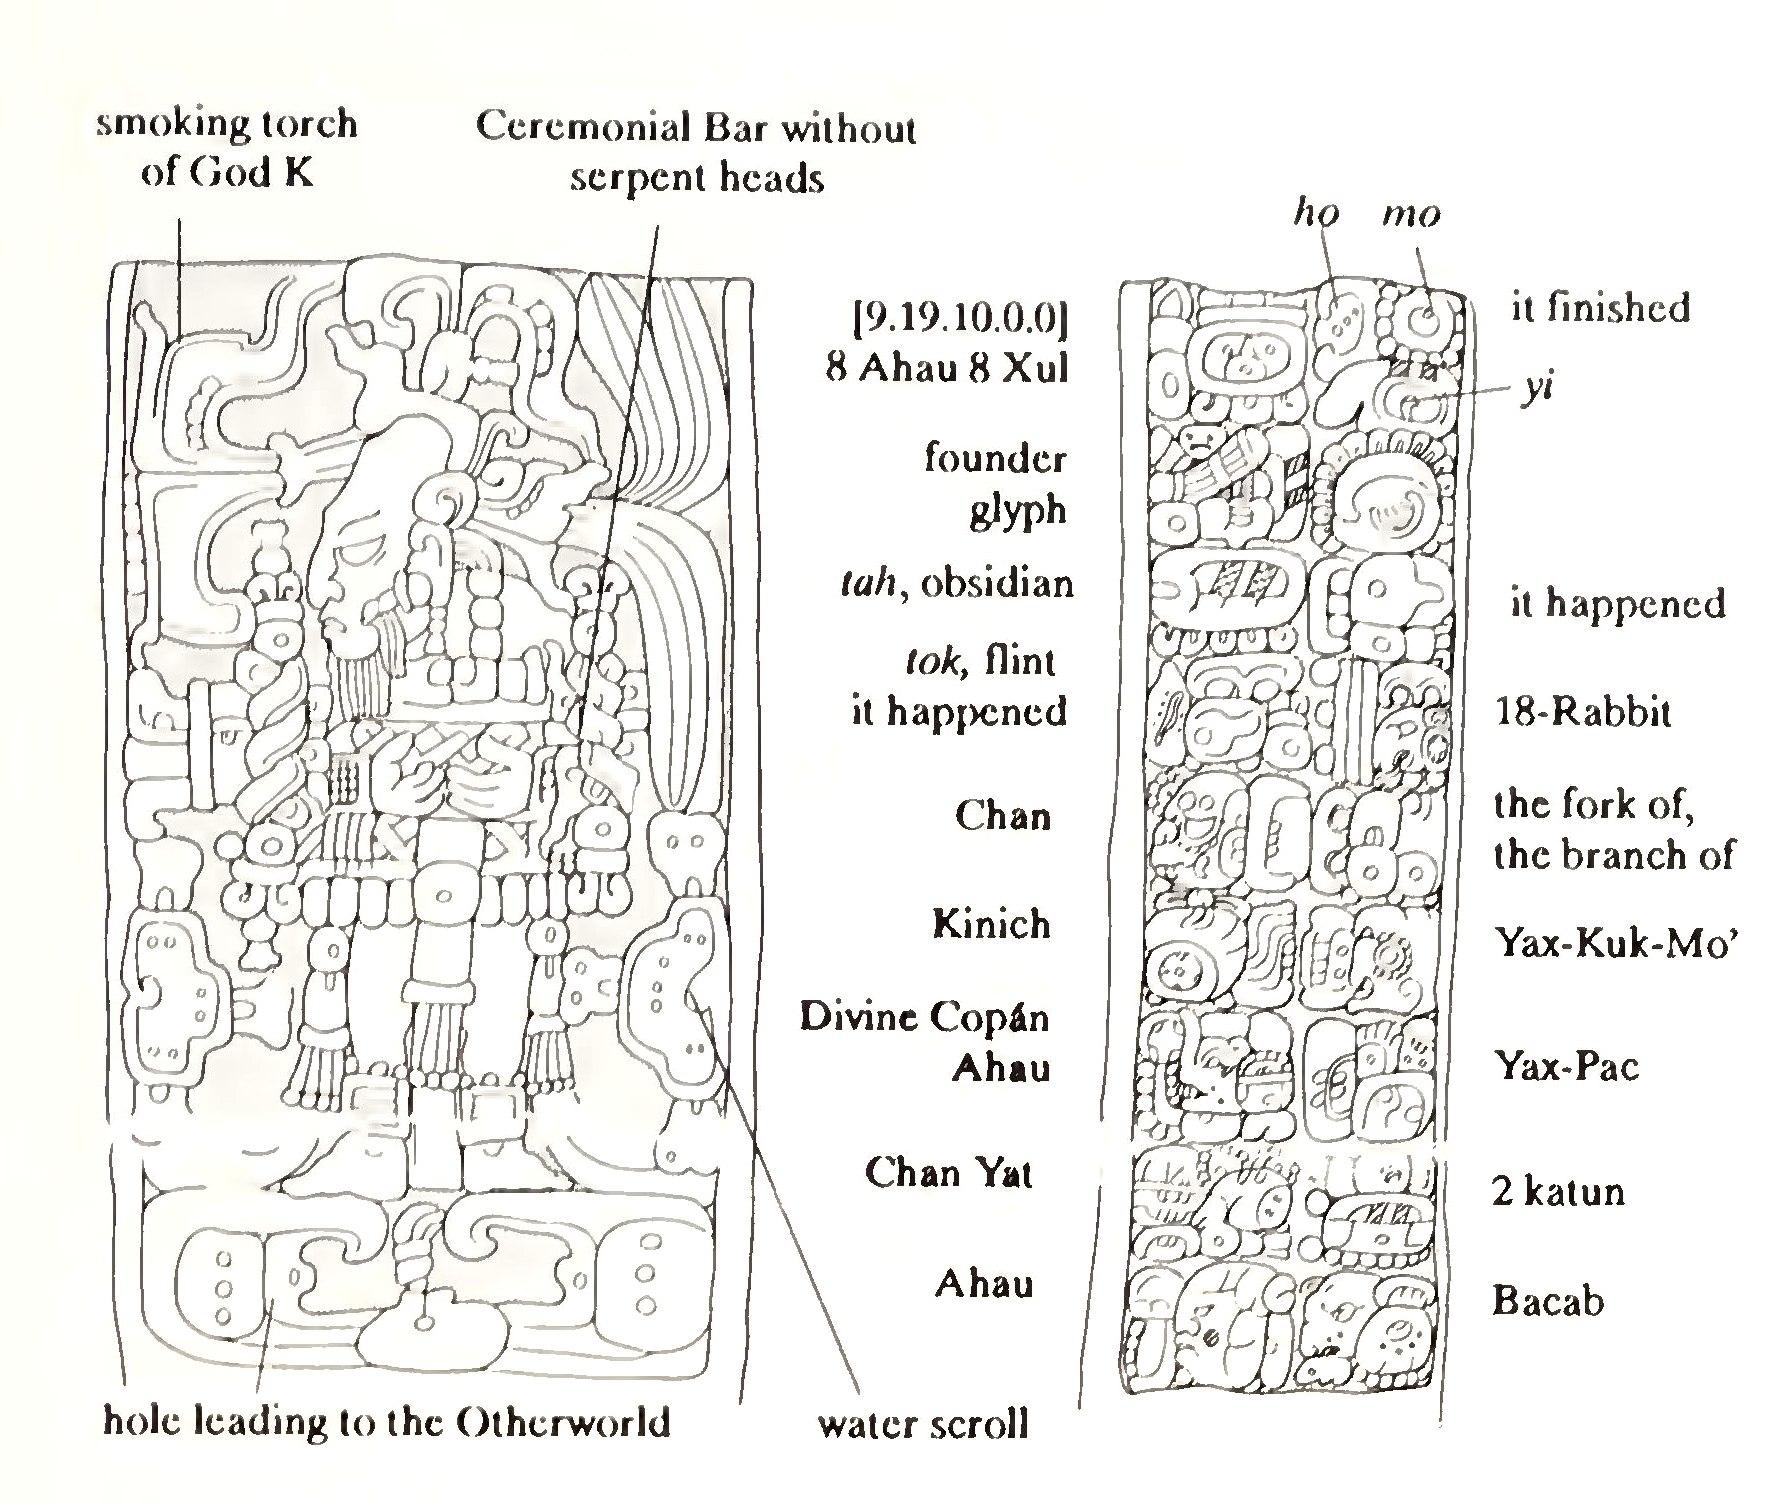 smoking torch
of God K
Ceremonial Bar without
serpent heads
ho mo
[9.19.10.0.0]
8 Ahau 8 Xul
it finished
yi
founder
glyph
tah, obsidian
it happened
tok, flint
it happened
18-Rabbit
Chan
the fork of,
the branch of
Kinich
Yax-Kuk-Mo’
Divine Copán
Ahau
Yax-Pac
Chan Yat
2 katun
Ahau
Bacab
hole leading to the Otherworld
water scroll